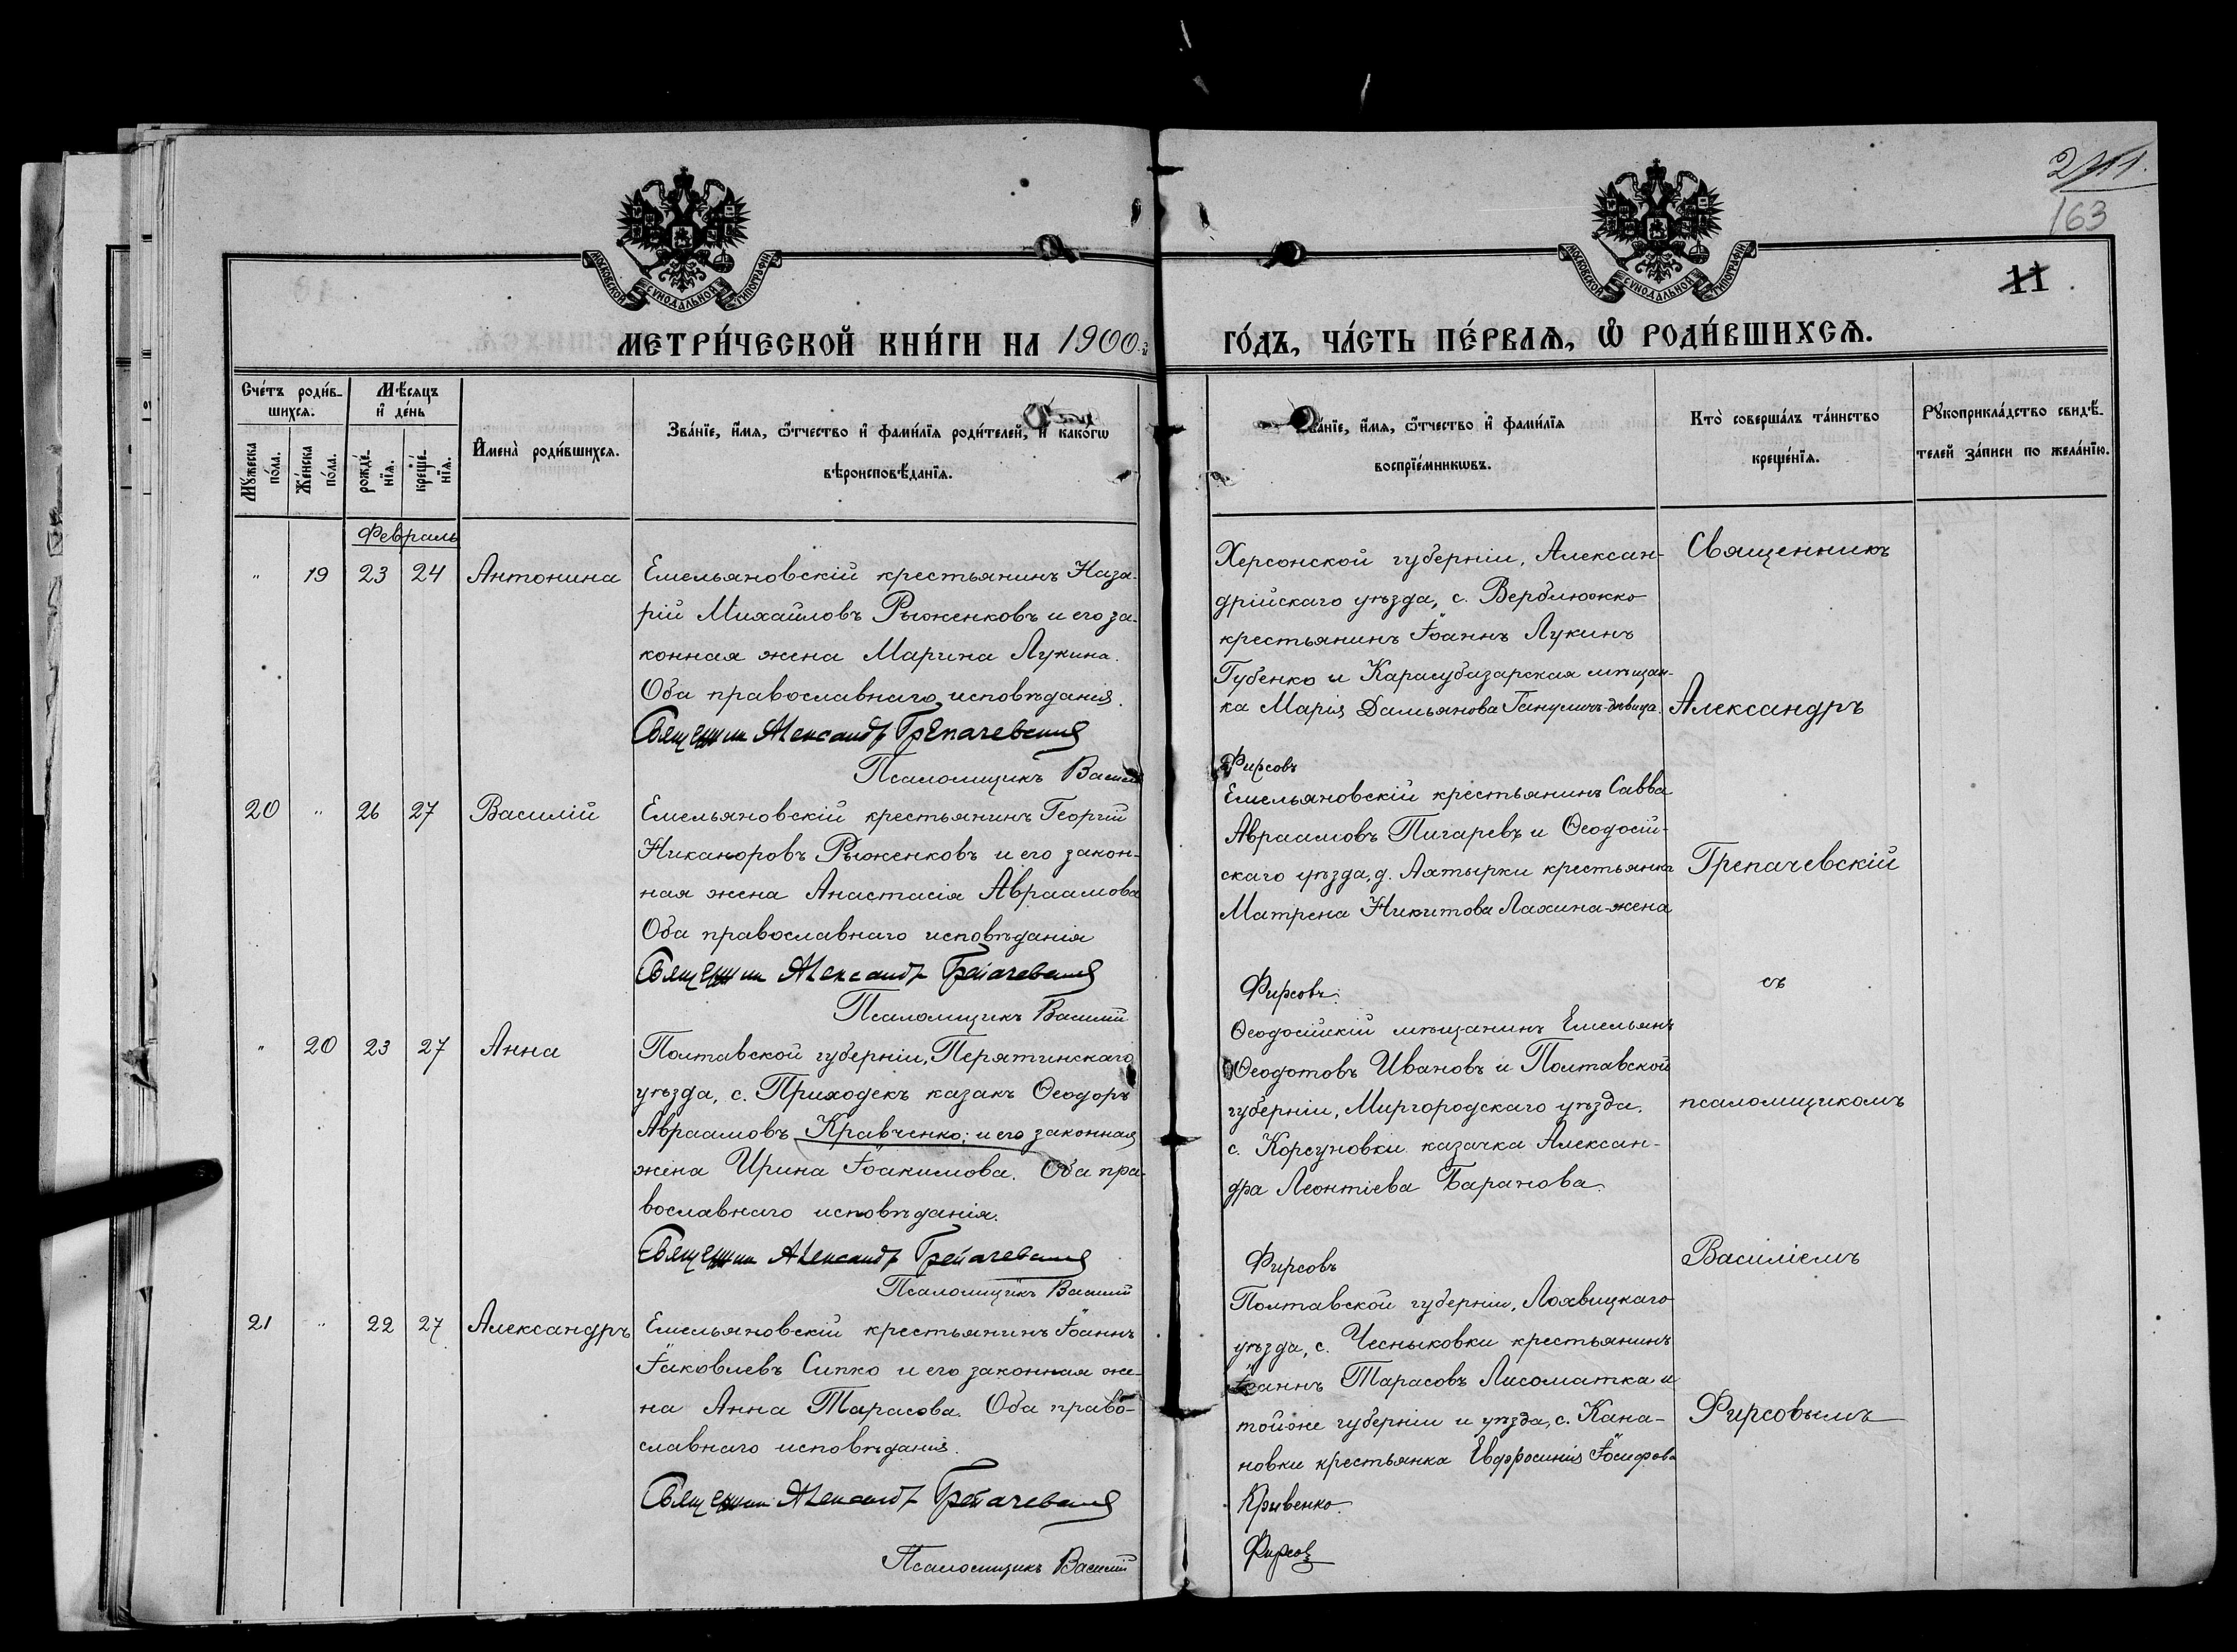 211.
163
11.
МОСКОВСКОЙ СУНОДАЛЬНОЙ ТИПОГРАФІИ
МОСКОВСКОЙ СУНОДАЛЬНОЙ ТИПОГРАФІИ
МЕТРИ́ЧЕСКОЙ КНИ́ГИ НА 1900.
ГО́ДЪ, ЧА́СТЬ ПЕ́РВАѦ, Ѡ РОДИ́ВШИХСѦ.
Сче́тъ роди́в-
шихсѧ.
Мꙋжеска по́ла.
Же́нска по́ла.
Мѣ́сѧцъ
и де́нь
рожде́-
нїѧ.
креще́-
нїѧ.
Имена̀ роди́вшихсѧ.
Зва́нїе, и́мѧ, ѻ́тчество и фами́лїѧ роди́телей, и како́гѡ
вѣроисповѣ́данїѧ.
Зва́нїе, и́мѧ, ѻ́тчество и фами́лїѧ
воспрїе́мникѡвъ.
Кто̀ соверша́лъ та́инство
креще́нїѧ.
Рꙋкоприкла́дство свидѣ́-
телей за́писи по жела́нїю.
Февраль
" 19 23 24 Антонина
Емельяновскій крестьянинъ Наза-
рій Михайловъ Рыженковъ и его за-
конная жена Марина Лукина.
Оба православнаго исповѣданія.
Священник Александр Трепачевский
Псаломщикъ Василий
Херсонской губерніи, Алексан-
дрійскаго уѣзда, с. Верблюжко
крестьянинъ Іоаннъ Лукинъ
Губенко и Карасубазарская мѣщан-
ка Марія Дамьянова Ганулич-дѣвица.
Фирсовъ
20 " 26 27 Василій
Емельяновскій крестьянинъ Георгій
Никаноровъ Рыженковъ и его закон-
ная жена Анастасія Авраамова
Оба православнаго исповѣданія
Священник Александр Трепачевский
Псаломщикъ Василий
Емельяновскій крестьянинъ Савва
Авраамовъ Пигаревъ и Ѳеодосій-
скаго уѣзда, д. Ахтырки крестьянка
Матрена Никитова Лахина-жена
Фирсовъ
" 20 23 27 Анна
Полтавской губерніи, Пирятинскаго
уѣзда, с. Приходекъ казакъ Ѳеодоръ
Авраамовъ Кравченко; и его законная
жена Ирина Іоакимова. Оба пра-
вославнаго исповѣданія.
Священник Александр Трепачевский
Псаломщикъ Василий
Ѳеодосійскій мѣщанинъ Емельянъ
Ѳеодотовъ Ивановъ и Полтавской
губерніи, Миргородскаго уѣзда,
с. Корсуновки казачка Алексан-
дра Леонтіева Баранова.
Фирсовъ
21 " 22 27 Александръ
Емельяновскій крестьянинъ Іоаннъ
Іаковлевъ Сипко и его законная же-
на Анна Тарасова. Оба право-
славнаго исповѣданія.
Священник Александр Трепачевский
Псаломщикъ Василий
Полтавской губерніи, Лохвицкаго
уѣзда, с. Чесныковки крестьянинъ
Іоаннъ Тарасовъ Лисоматка и
тойже губерніи и уѣзда, с. Кана-
новки крестьянка Евфросинія Іосифова
Кривенко.
Фирсовъ
Священникъ
Александръ
Трепачевскій
съ
псаломщикомъ
Василіемъ
Фирсовымъ